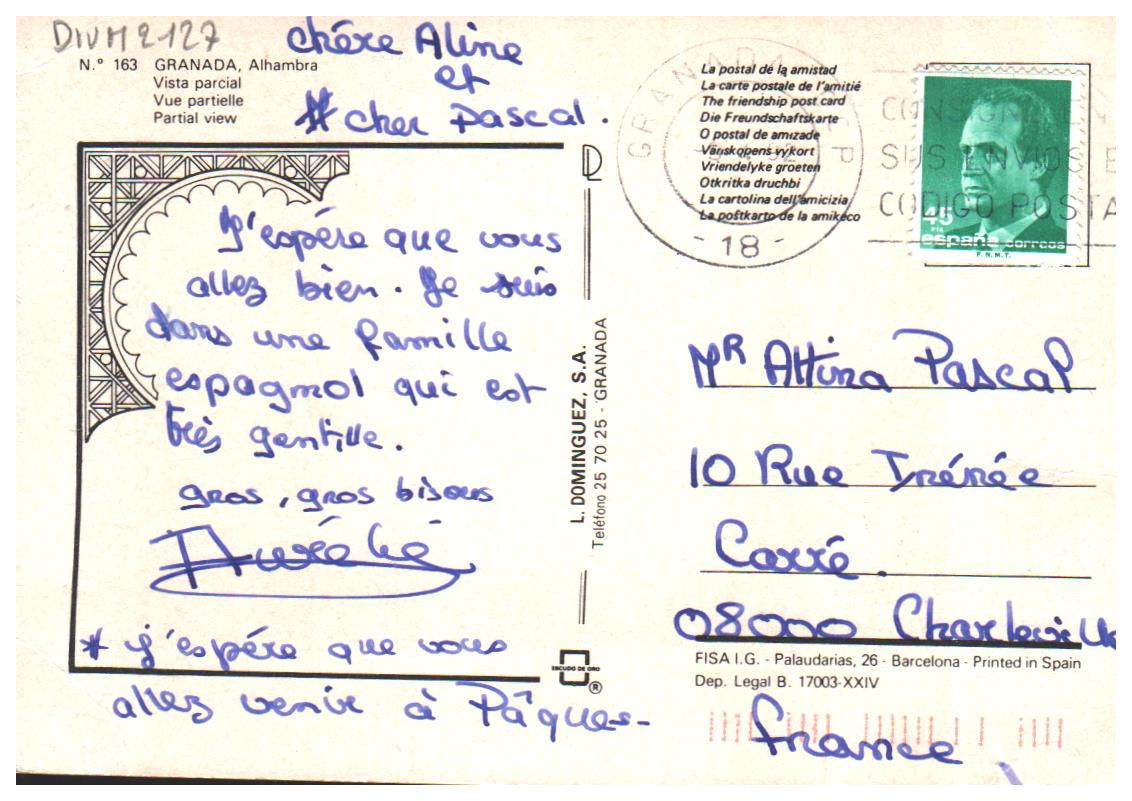 DIVM2127
N.º 163 GRANADA, Alhambra
Vista parcial
Vue partielle
Partial view
chére Aline
et
* cher Pascal.
J'espére que vous
allez bien. Je suis
dans une famille
espagnol qui est
très gentille.
gros, gros bisous
Aurélie
* j'espére que vous
allez venir à Pâques-
L. DOMINGUEZ, S.A.
Teléfono 25 70 25 - GRANADA
ESCUDO DE ORO
®
La postal de la amistad
La carte postale de l'amitié
The friendship post card
Die Freundschaftskarte
O postal de amizade
Vänskopens vykort
Vriendelyke groeten
Otkritka druchbi
La cartolina dell'amicizia
La poŝtkarto de la amikeco
GRANADA
- 18 -
CONSIGNE EN
SUS ENVIOS E
CODIGO POSTA
45
PTA
españa correos
F.N.M.T.
Mr Attina Pascal
10 Rue Irénée
Carré.
08000 Charleville
France
FISA I.G. - Palaudarias, 26 - Barcelona - Printed in Spain
Dep. Legal B. 17003-XXIV